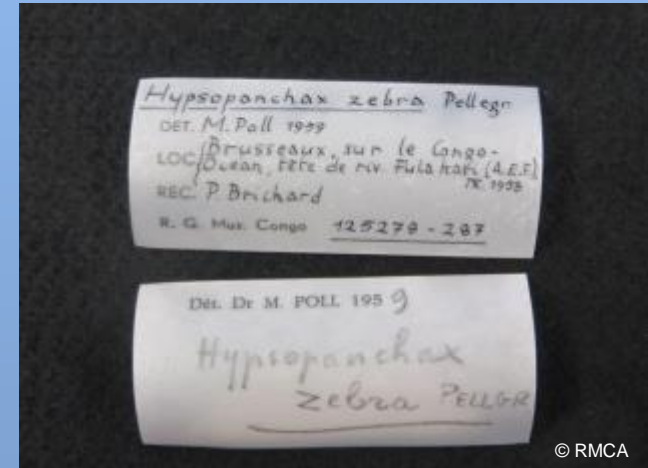 Hypsopanchax zebra Pellegr
DET. M. Poll 1959
LOC. Brusseaux, sur le Congo-
Océan, tête de riv. Fulakari (A.E.F.)
IX. 1958
REC. P. Brichard
R. G. Mus. Congo 125278-287
Dét. Dr M. POLL 1959
Hypsopanchax
zebra PELLGR
© RMCA